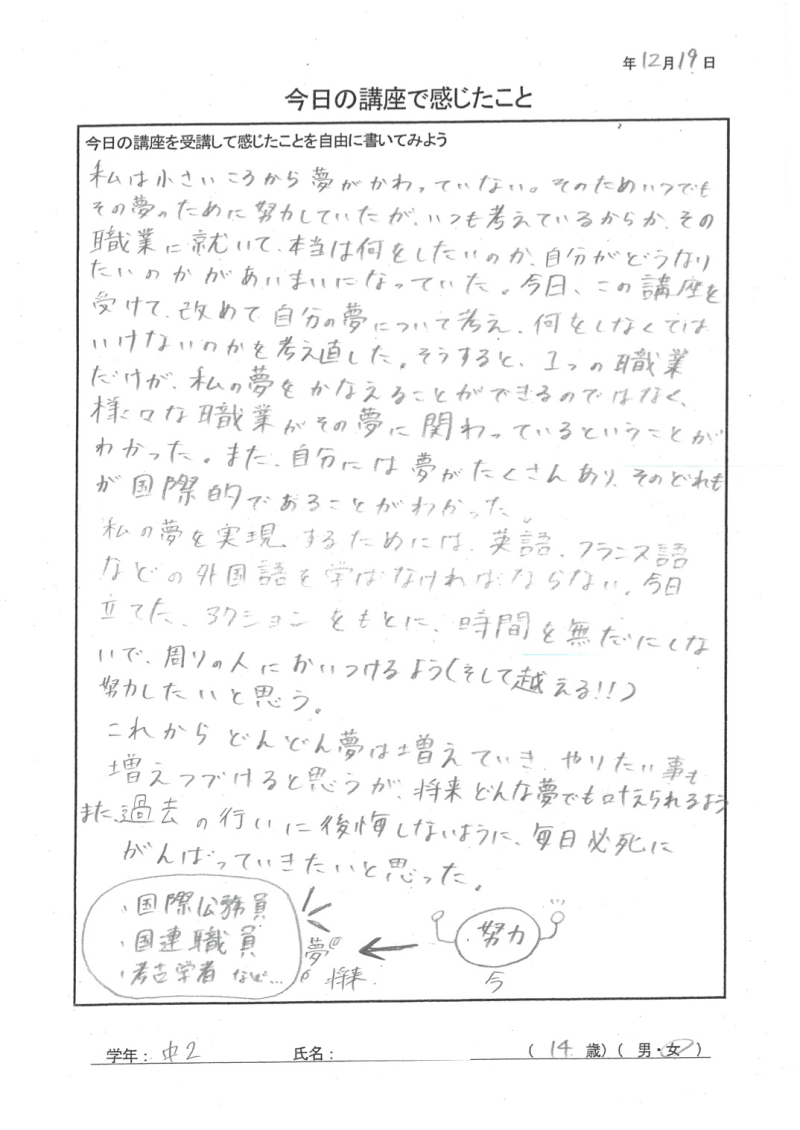 年12月19日
今日の講座で感じたこと
今日の講座を受講して感じたことを自由に書いてみよう
私は小さいころから夢がかわっていない。そのためいつでも
その夢のために努力していたが、いつも考えているからか、その
職業に就いて、本当は何をしたいのか、自分がどうなり
たいのかがあいまいになっていた。今日、この講座を
受けて、改めて自分の夢について考え、何をしなくては
いけないのかを考え直した。そうすると、1つの職業
だけが、私の夢をかなえることができるのではなく、
様々な職業がその夢に関わっているということが
わかった。また、自分には夢がたくさんあり、そのどれも
が国際的であることがわかった。
私の夢を実現するためには、英語、フランス語
などの外国語を学ばなければならない。今日
立てた、アクションをもとに、時間を無だにしな
いで、周りの人においつけるよう(そして越える!!)
努力したいと思う。
これからどんどん夢は増えていき、やりたい事も
増えつづけると思うが、将来どんな夢でも叶えられるよう
また、過去の行いに後悔しないように、毎日必死に
がんばっていきたいと思った。
・国際公務員
・国連職員
・考古学者 など…
夢
将来
努力
今
学年：中2 氏名： （14歳）（男・女）